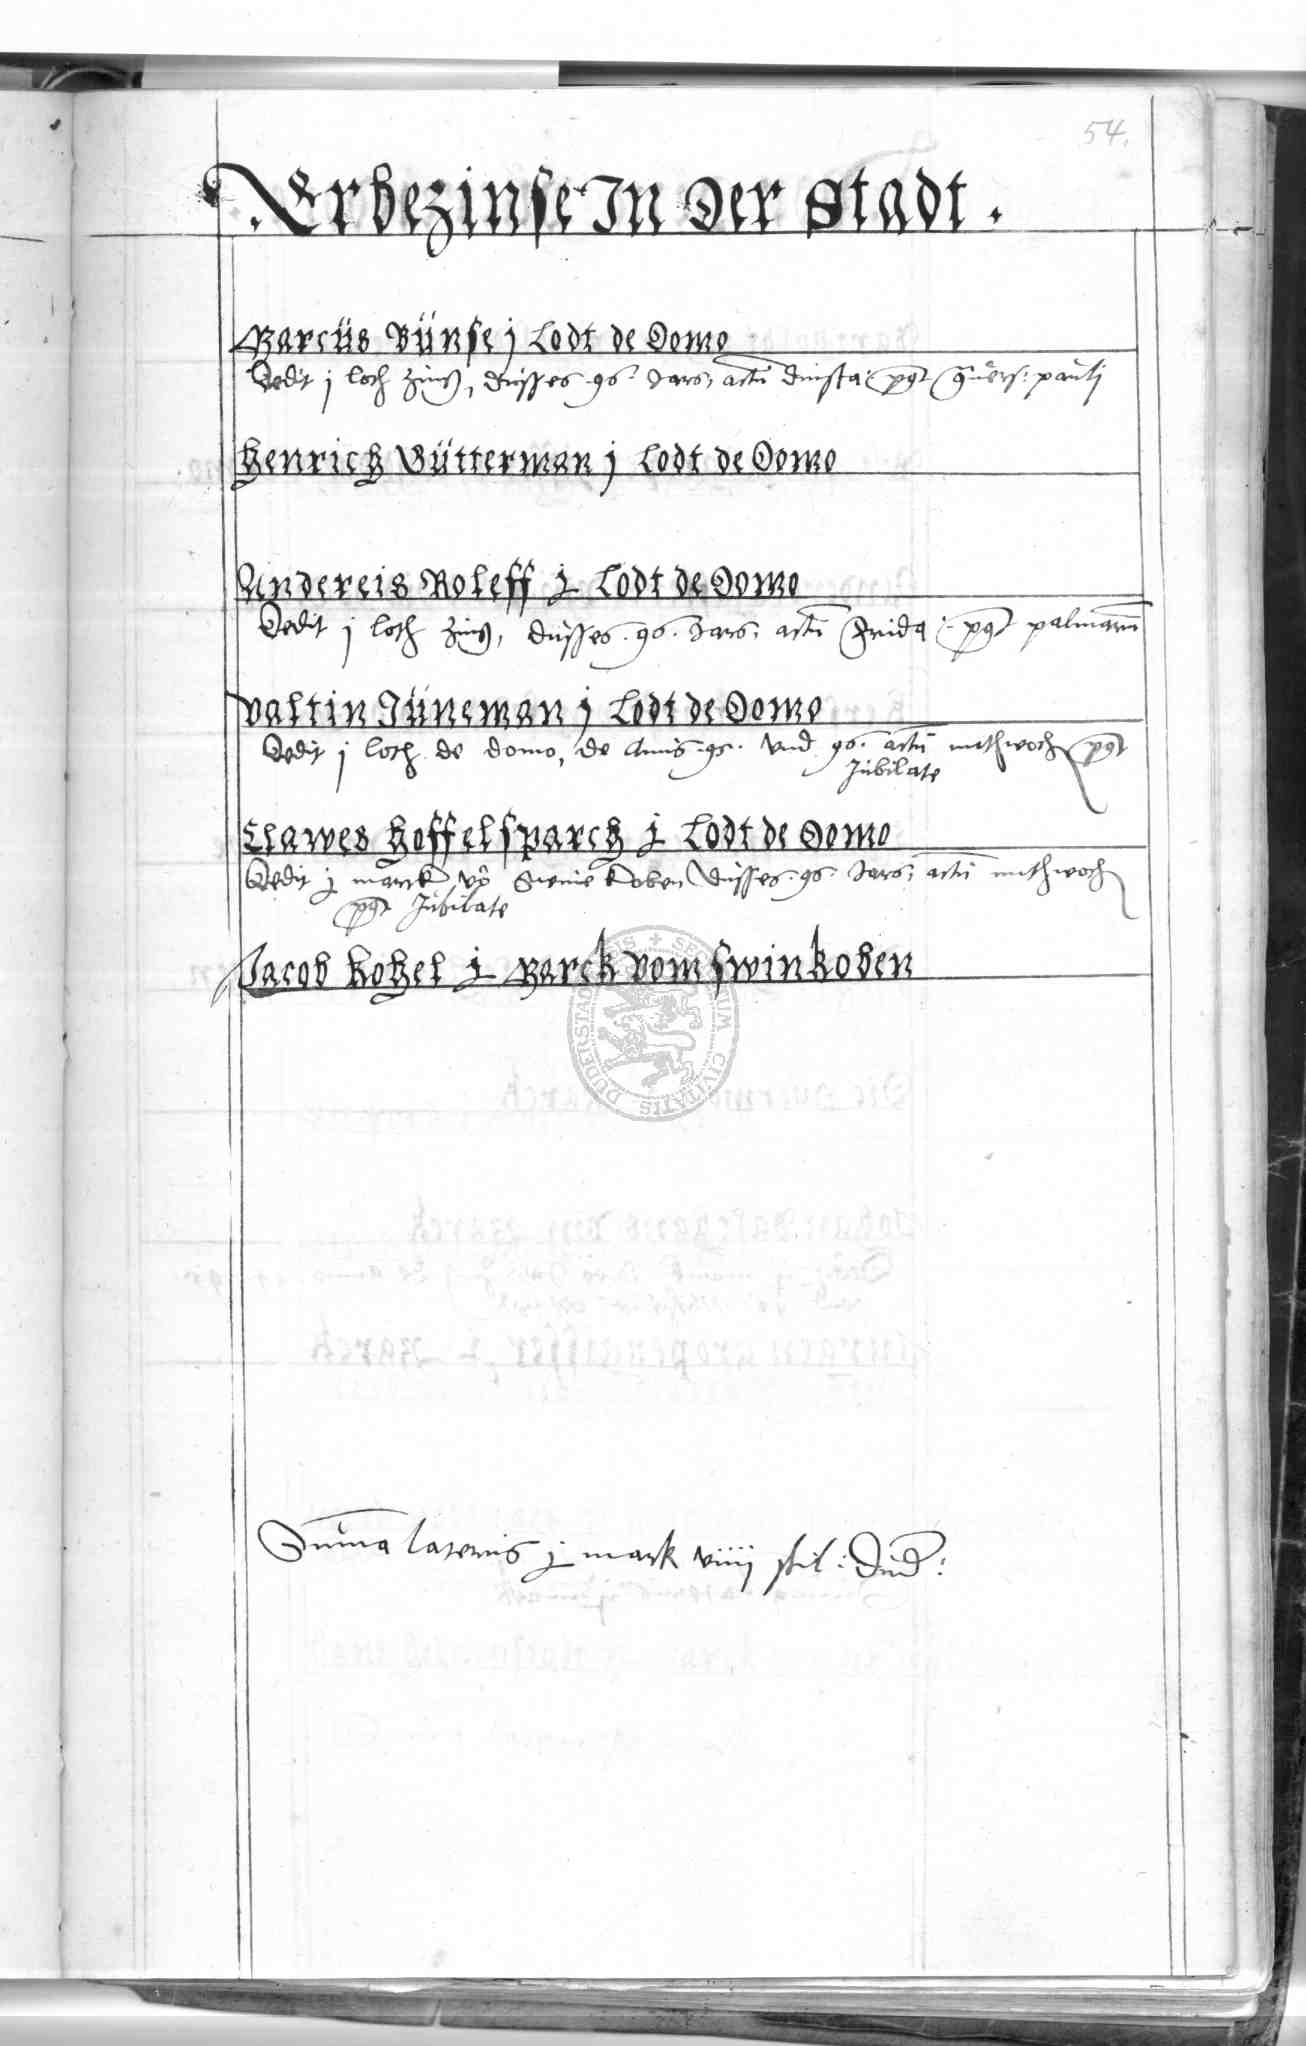 54.
Erbezinse In Der Stadt.
Marcüs Bünse j Lodt de Domo
Dedit j loth zinß, düsses .96. Jars, actū dinsta: post Conüers: paüli
Henrich Bütterman j Lodt de Domo
Andereis Roleff j Lodt de Domo
Dedit j loth zinß, düsses .96. Jars, actū Frida: post palmarū
Valtin Jüneman j Lodt de Domo
Dedit j loth de domo, de Annis .95. vnd .96. actū mithwoch post
Jübilate
Clawes Hoffelsparch j Lodt de Domo
Dedit j marck vō Sweine koben düsses .96. Jars, actū mithwoch
post Jübilate
Jacob Hotzel j Marck vom Swinkoben
SECRETUM CIVITATIS DUDERSTADENSIS
Sūma lateris j mark viiij ßil: